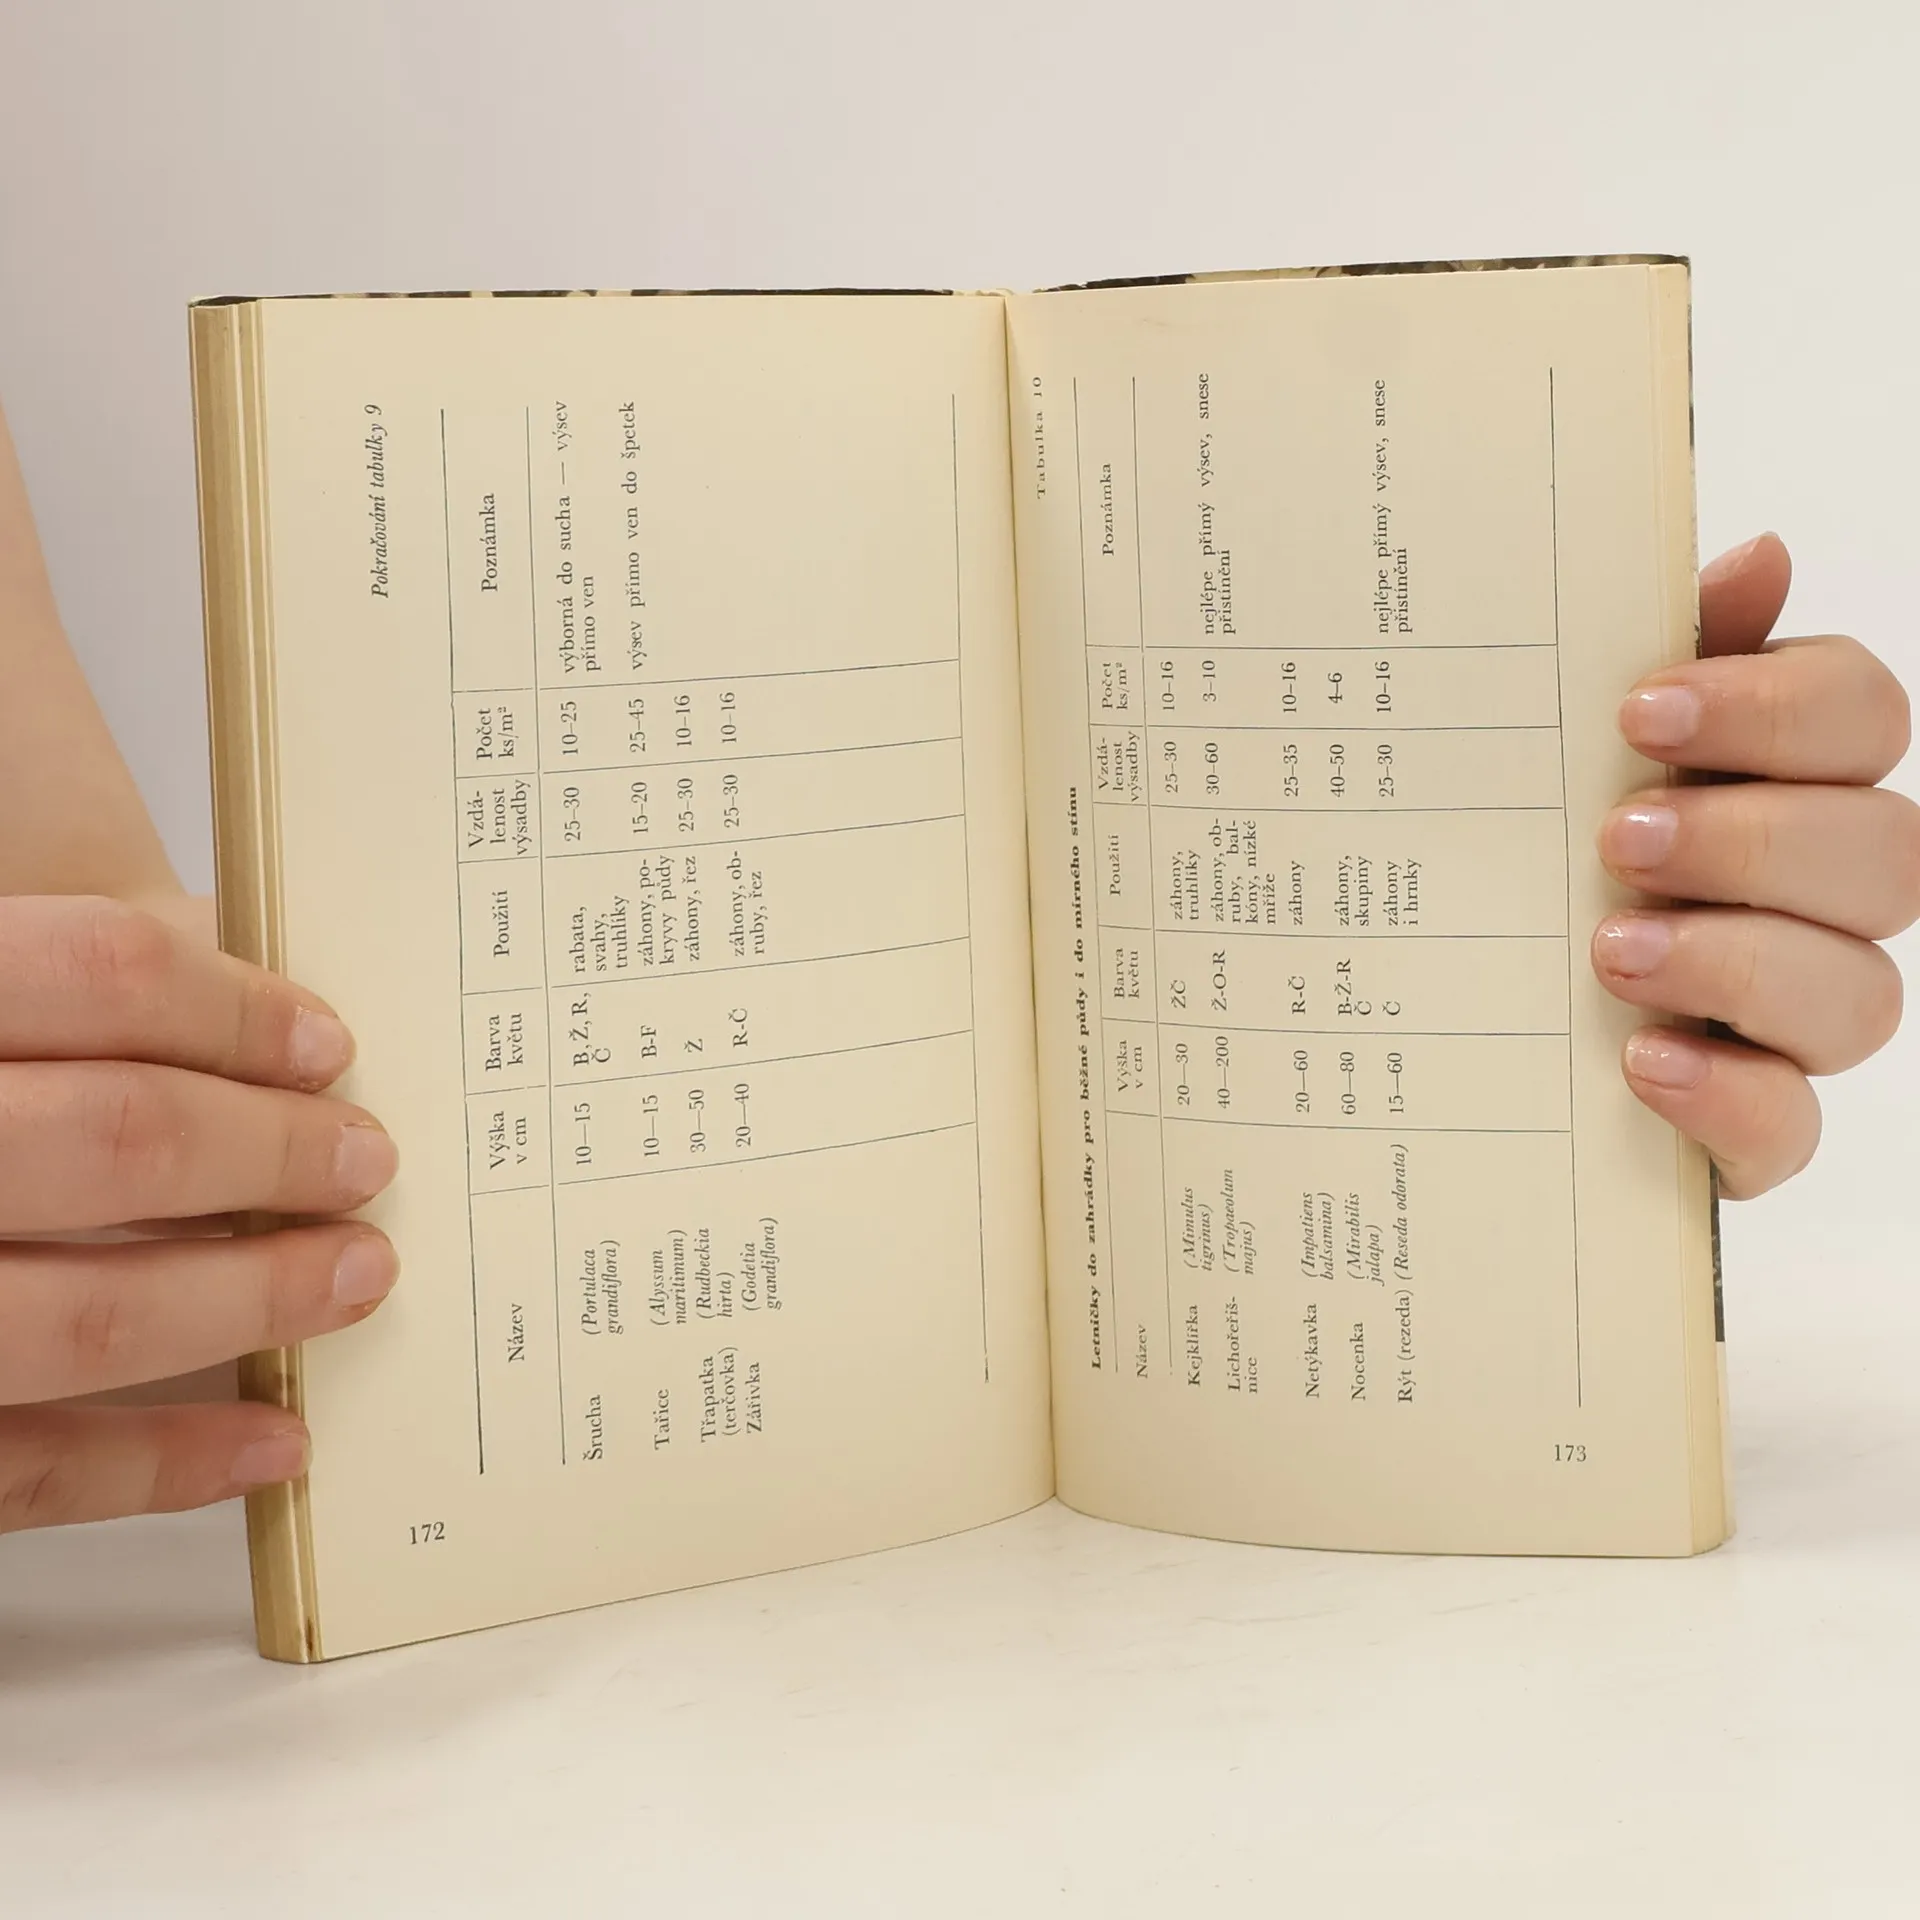 Pokračování tabulky 9
Název
Výška
v cm
Barva
květu
Použití
Vzdá-
lenost
výsadby
Počet
ks/m²
Poznámka
Šrucha
(Portulaca
grandiflora)
10—15
B, Ž, R,
Č
rabata,
svahy,
truhlíky
25–30
10–25
výborná do sucha — výsev
přímo ven
Tařice
(Alyssum
maritimum)
10—15
B-F
záhony, po-
kryvy půdy
15–20
25–45
výsev přímo ven do špetek
Třapatka
(terčovka)
(Rudbeckia
hirta)
30—50
Ž
záhony, řez
25–30
10–16
Zářivka
(Godetia
grandiflora)
20—40
R-Č
záhony, ob-
ruby, řez
25–30
10–16
172
Tabulka 10
Letničky do zahrádky pro běžné půdy i do mírného stínu
Název
Výška
v cm
Barva
květu
Použití
Vzdá-
lenost
výsadby
Počet
ks/m²
Poznámka
Kejklířka
(Mimulus
tigrinus)
20—30
ŽČ
záhony,
truhlíky
25–30
10–16
Lichořeřiš-
nice
(Tropaeolum
majus)
40—200
Ž-O-R
záhony, ob-
ruby, bal-
kóny, nízké
mříže
30–60
3–10
nejlépe přímý výsev, snese
přistínění
Netýkavka
(Impatiens
balsamina)
20—60
R-Č
záhony
25–35
10–16
Nocenka
(Mirabilis
jalapa)
60—80
B-Ž-R
Č
záhony,
skupiny
40–50
4–6
Rýt (rezeda) (Reseda odorata)
15—60
Č
záhony
i hrnky
25–30
10–16
nejlépe přímý výsev, snese
přistínění
173